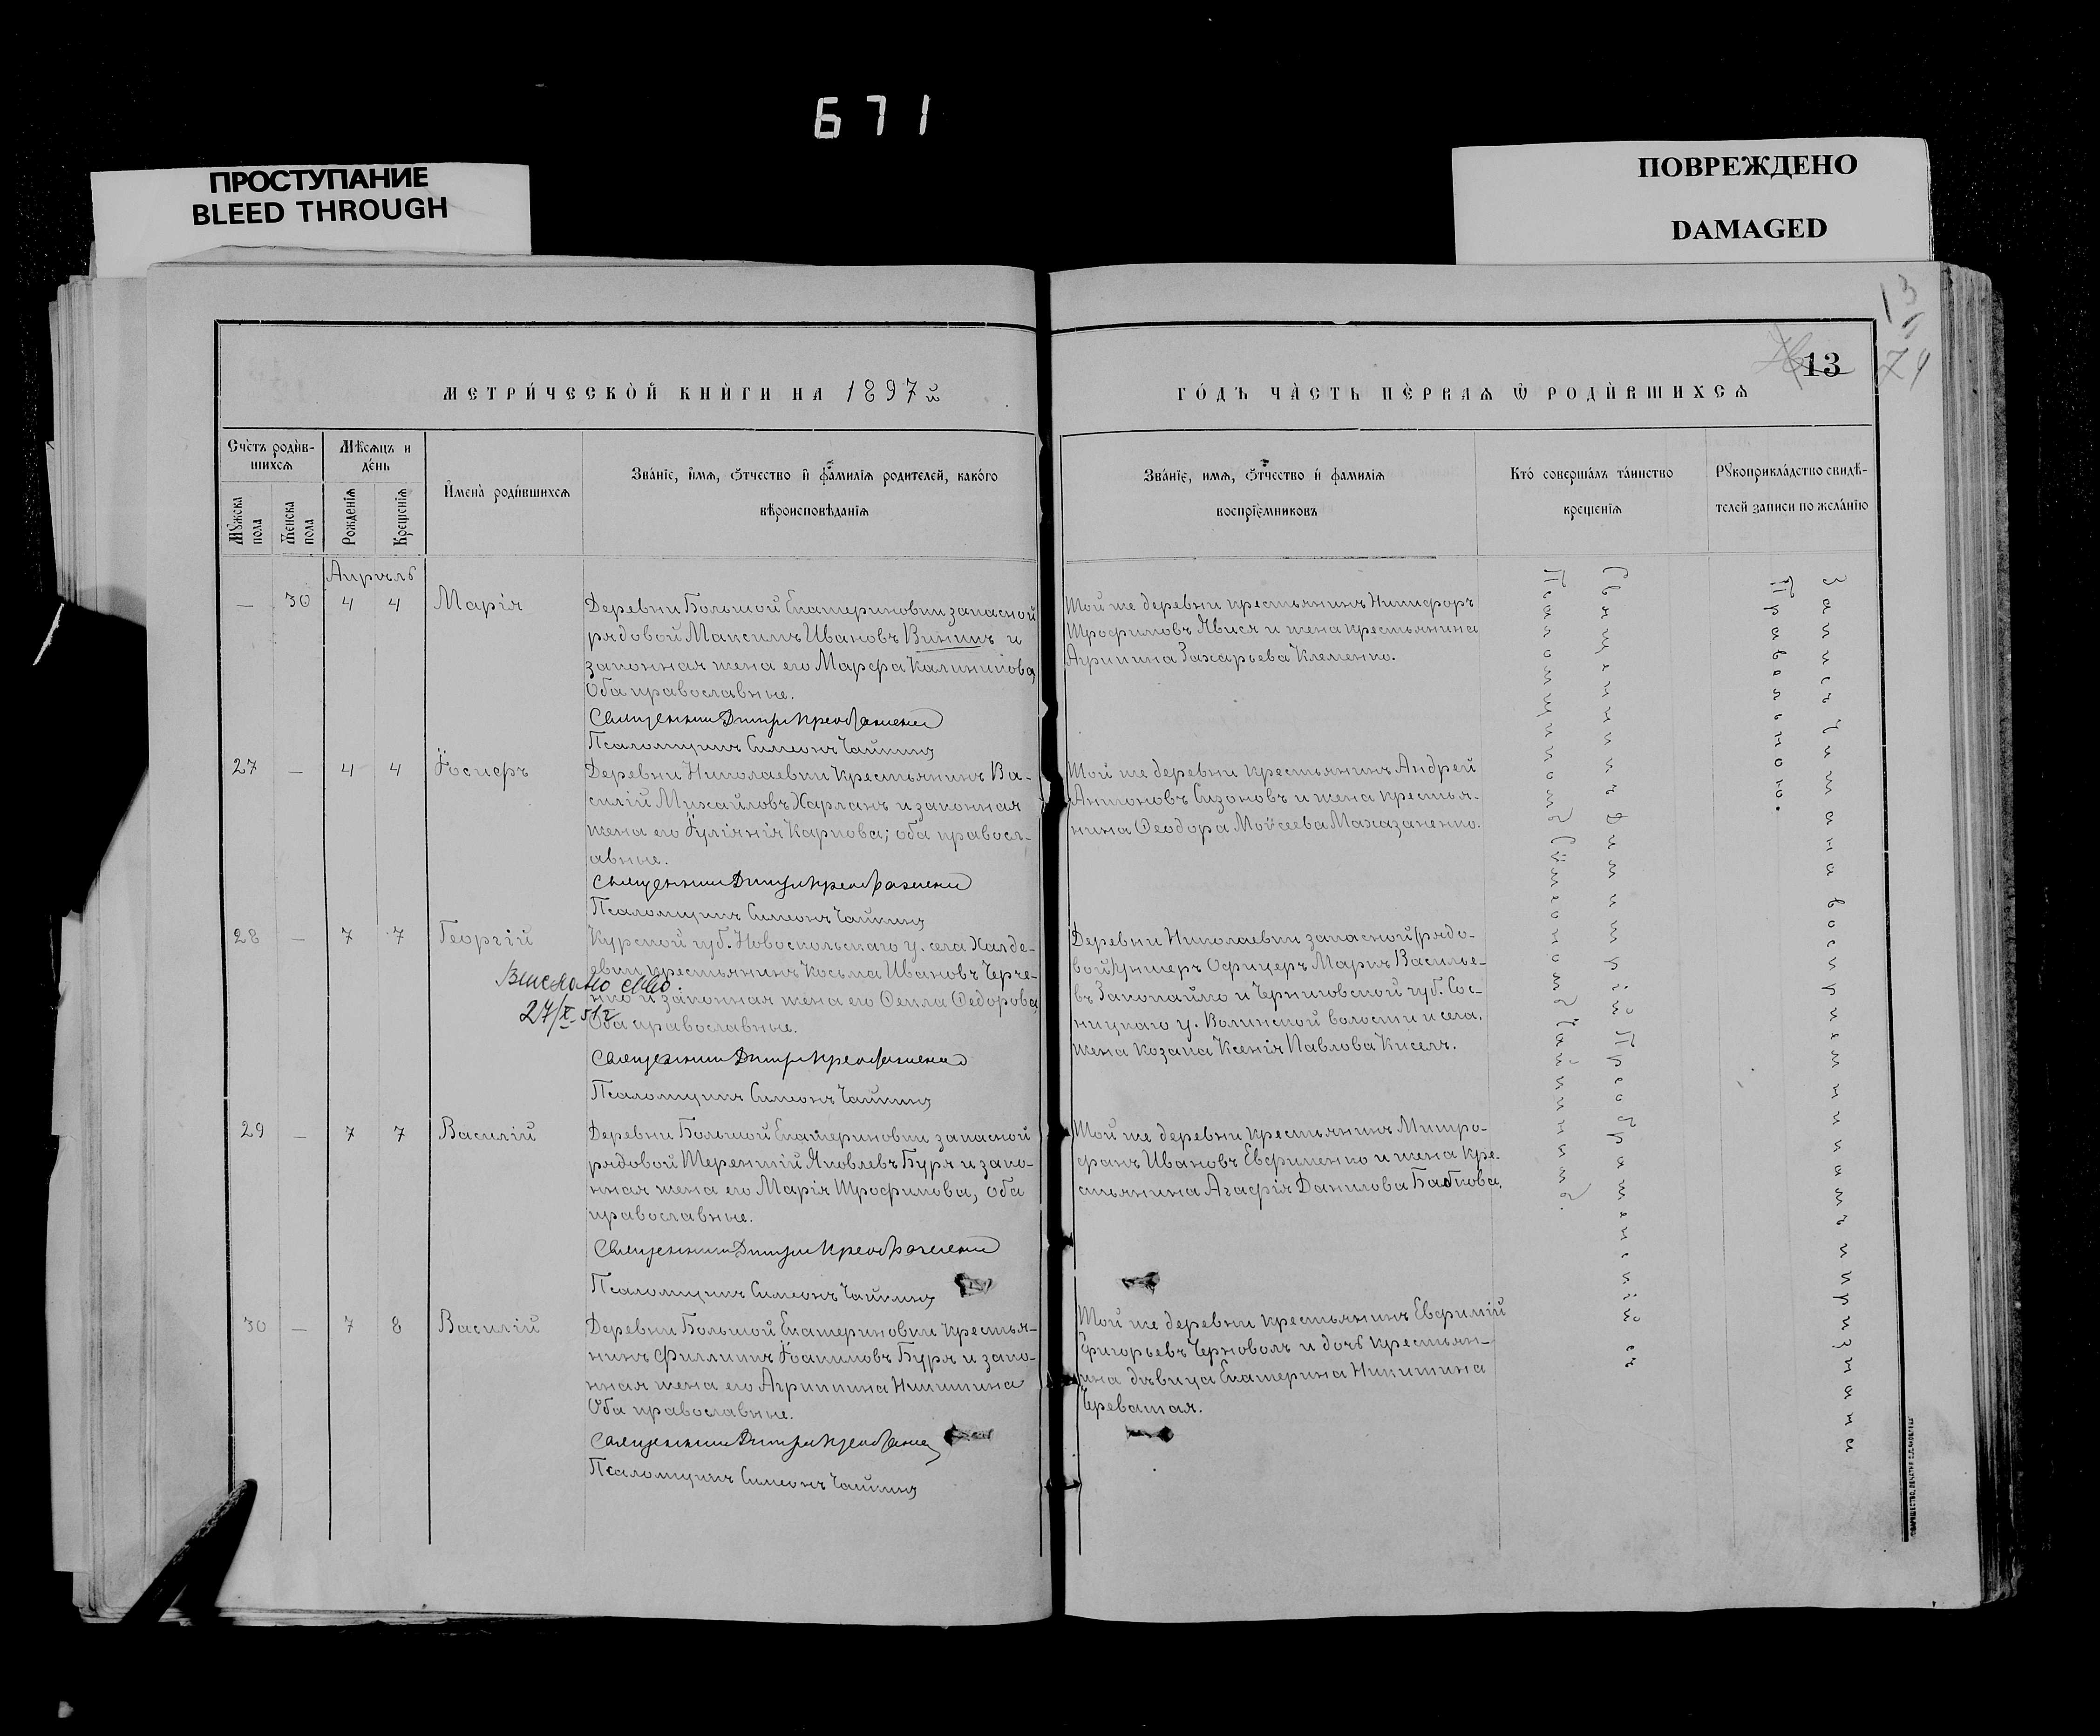 671
ПРОСТУПАНИЕ
BLEED THROUGH
ПОВРЕЖДЕНО
DAMAGED
13
13
МЕТРИ́ЧЕСКО̀Й КНЍГИ НА 1897й
ГО́ДЪ ЧА̀СТЬ ПЀРВАѦ Ѿ РОДЍВШИХСѦ
Счетъ родѝв-
шихсѧ
Мѣсѧцъ и
де́нь
Мꙋжска
пола
Женска
пола
Рожденїѧ
Крещенїѧ
Имена̀ роди́вшихсѧ
Зва́нїе, и́мѧ, ѿчество и҆ фами́лїѧ родителей, како́го
вѣроисповѣданїѧ
Зва́нїе, имѧ, ѿчество и҆ фамилїѧ
воспрїемниковъ
Кто́ соверша́лъ та́инство
крещенїѧ
Рꙋкоприкла́дство свидѣ-
телей записи по жела́нїю
Апрѣль
— 30 4 4 Марія
Деревни Большой Екатериновки запасной
рядовой Максимъ Ивановъ и
законная жена его Марфа Калиникова
Оба православные.
Священникъ Димитрій Преображенскій
Псаломщикъ Симеонъ Чайкинъ
Той же деревни крестьянинъ Никифоръ
Трофимовъ Явися и жена крестьянина
Агрипина Захарьева Клеменко.
27 — 4 4 Іосифъ
Деревни Николаевки крестьянинъ Ва-
силій Михайловъ Харланъ и законная
жена его Іуліянія Карпова; оба правосл-
авные.
Священникъ Димитрій Преображенскій
Псаломщикъ Симеонъ Чайкинъ
Той же деревни крестьянинъ Андрей
Антоновъ Сизоновъ и жена крестья-
нина Ѳеодора Моисеева Махазаненко.
28 — 7 7 Георгій
Выслано св-во
27/X-51г
Курской губ. Новоскольскаго у. села Халде-
евки крестьянинъ Косьма Ивановъ Черче-
нко и законная жена его Ѳекла Ѳедорова
Оба православные.
Священникъ Димитрій Преображенскій
Псаломщикъ Симеонъ Чайкинъ
Деревни Николаевки запасной рядо-
вой Унтеръ Офицеръ Маркъ Василье-
въ Закопайко и Черниговской губ. Сос-
ницкаго у. Волинской волости и села.
жена козака Ксенія Павлова Киселъ.
29 — 7 7 Василій
Деревни Большой Екатериновки запасной
рядовой Терентій Яковлевъ Буря и зако-
нная жена его Марія Трофимова, оба
православные.
Священникъ Димитрій Преображенскій
Псаломщикъ Симеонъ Чайкинъ
Той же деревни крестьянинъ Митро-
фанъ Ивановъ Евфименко и жена кре-
стьянина Агафія Данилова Бабкова.
30 — 7 8 Василій
Деревни Большой Екатериновки крестья-
нинъ Филлипъ Іоакимовъ Буря и зако-
нная жена его Агриппина Никитина
Оба православные.
Священникъ Димитрій Преображенскій
Псаломщикъ Симеонъ Чайкинъ
Той же деревни крестьянинъ Евфимій
Григорьевъ Черноволъ и дочь крестьян-
ина дѣвица Екатерина Никитина
Череватая.
Священникъ Димитрій Преображенскій съ
Псаломщикомъ Сімеономъ Чайкинымъ.
Запись читана воспріемникамъ и признана
Правильною.